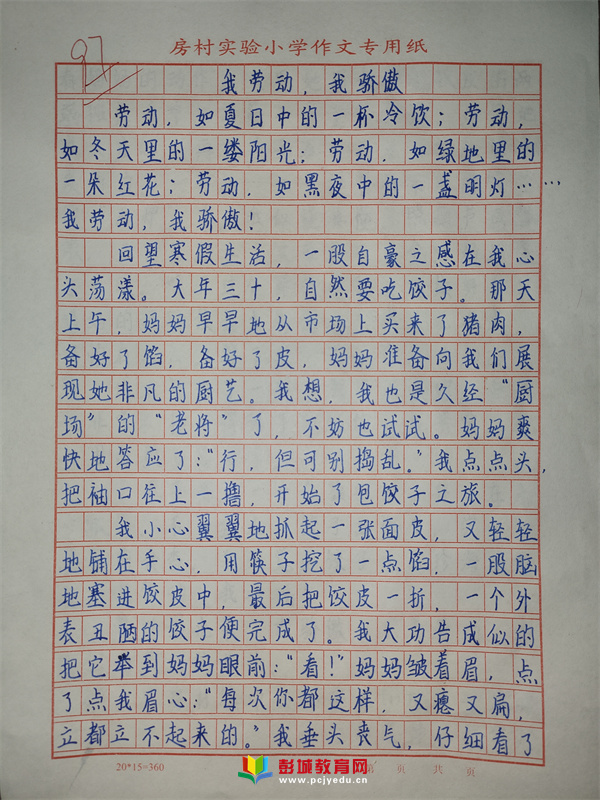 97
房村实验小学作文专用纸
我劳动，我骄傲
劳动，如夏日中的一杯冷饮；劳动，
如冬天里的一缕阳光；劳动，如绿地里的
一朵红花；劳动，如黑夜中的一盏明灯……
我劳动，我骄傲！
回望寒假生活，一股自豪之感在我心
头荡漾。大年三十，自然要吃饺子。那天
上午，妈妈早早地从市场上买来了猪肉，
备好了馅，备好了皮，妈妈准备向我们展
现她非凡的厨艺。我想，我也是久经“厨
场”的“老将”了，不妨也试试。妈妈爽
快地答应了：“行，但可别捣乱。”我点点头，
把袖口往上一撸，开始了包饺子之旅。
我小心翼翼地抓起一张面皮，又轻轻
地铺在手心，用筷子挖了一点馅，一股脑
地塞进饺皮中，最后把饺皮一折，一个外
表丑陋的饺子便完成了。我大功告成似的
把它举到妈妈眼前：“看！”妈妈皱着眉，点
了点我眉心：“每次你都这样，又瘪又扁，
立都立不起来的。”我垂头丧气，仔细看了
20*15=360
第 页 共 页
彭城教育网
www.pcjyedu.cn